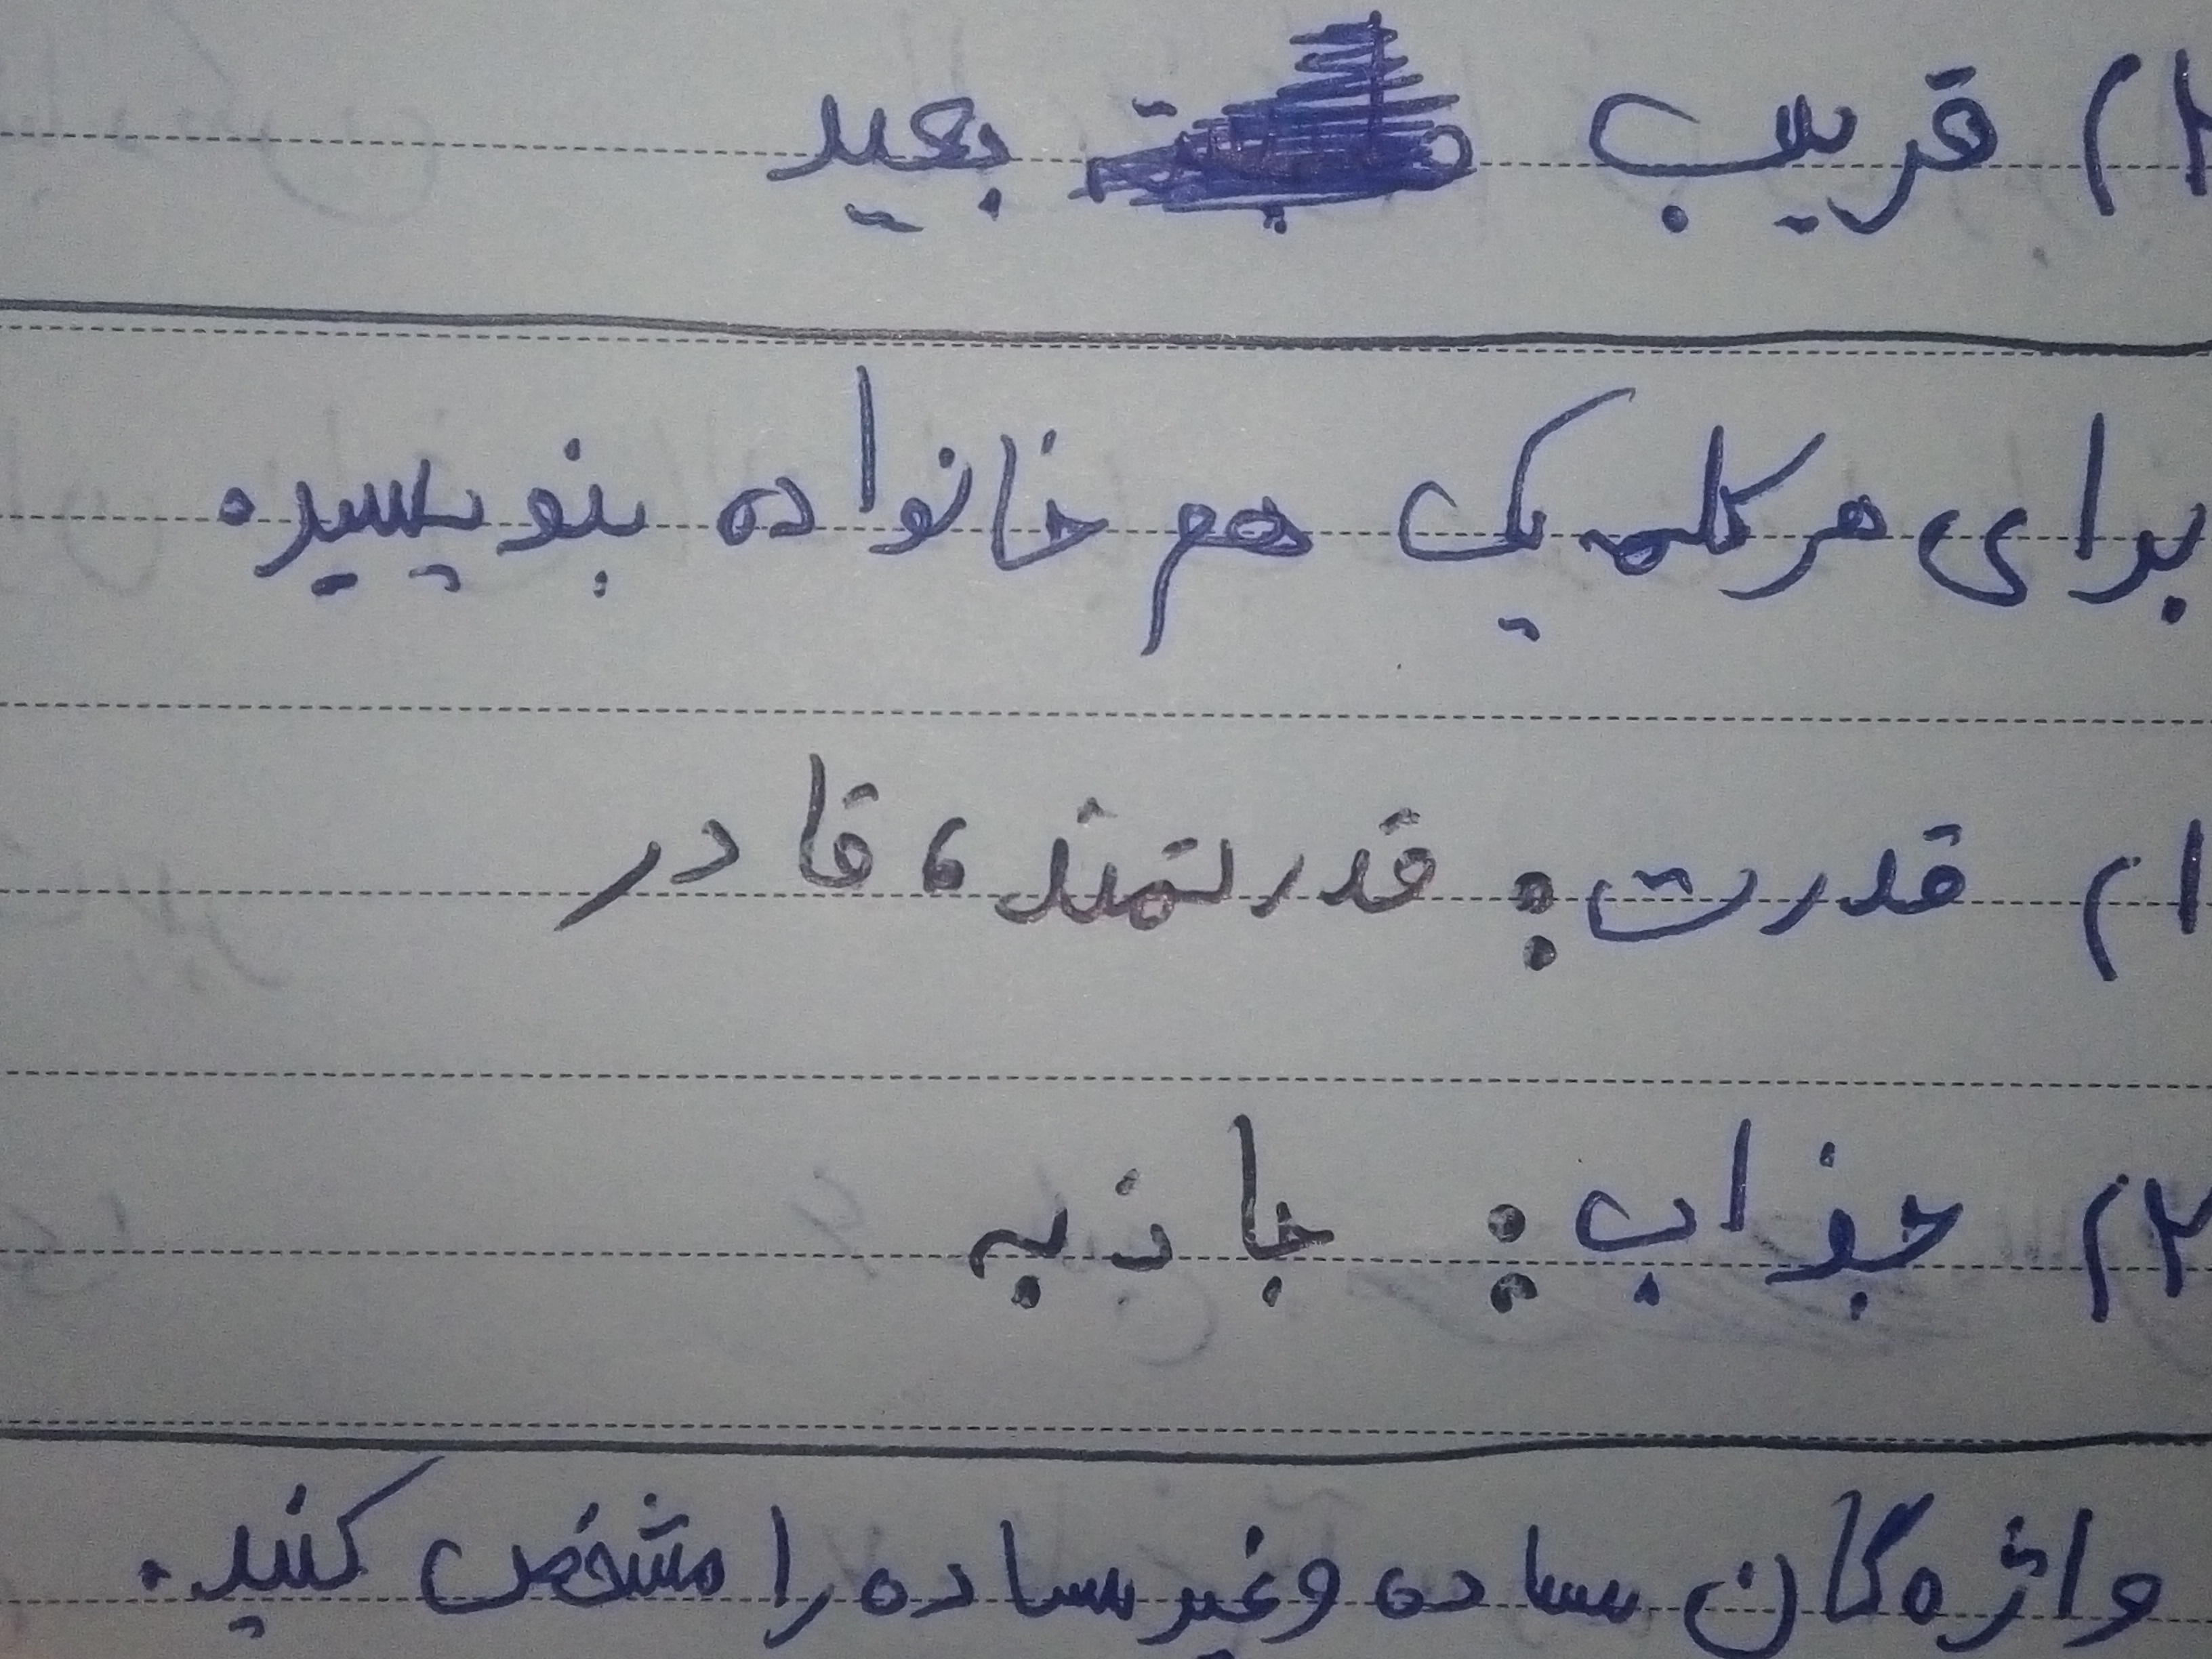 ۲) قریب بعید
برای هر کلمه یک هم خانواده بنویسید.
۱) قدرت: قدرتمند، قادر
۲) جذاب: جاذبه
واژه گان ساده و غیر ساده را مشخص کنید.